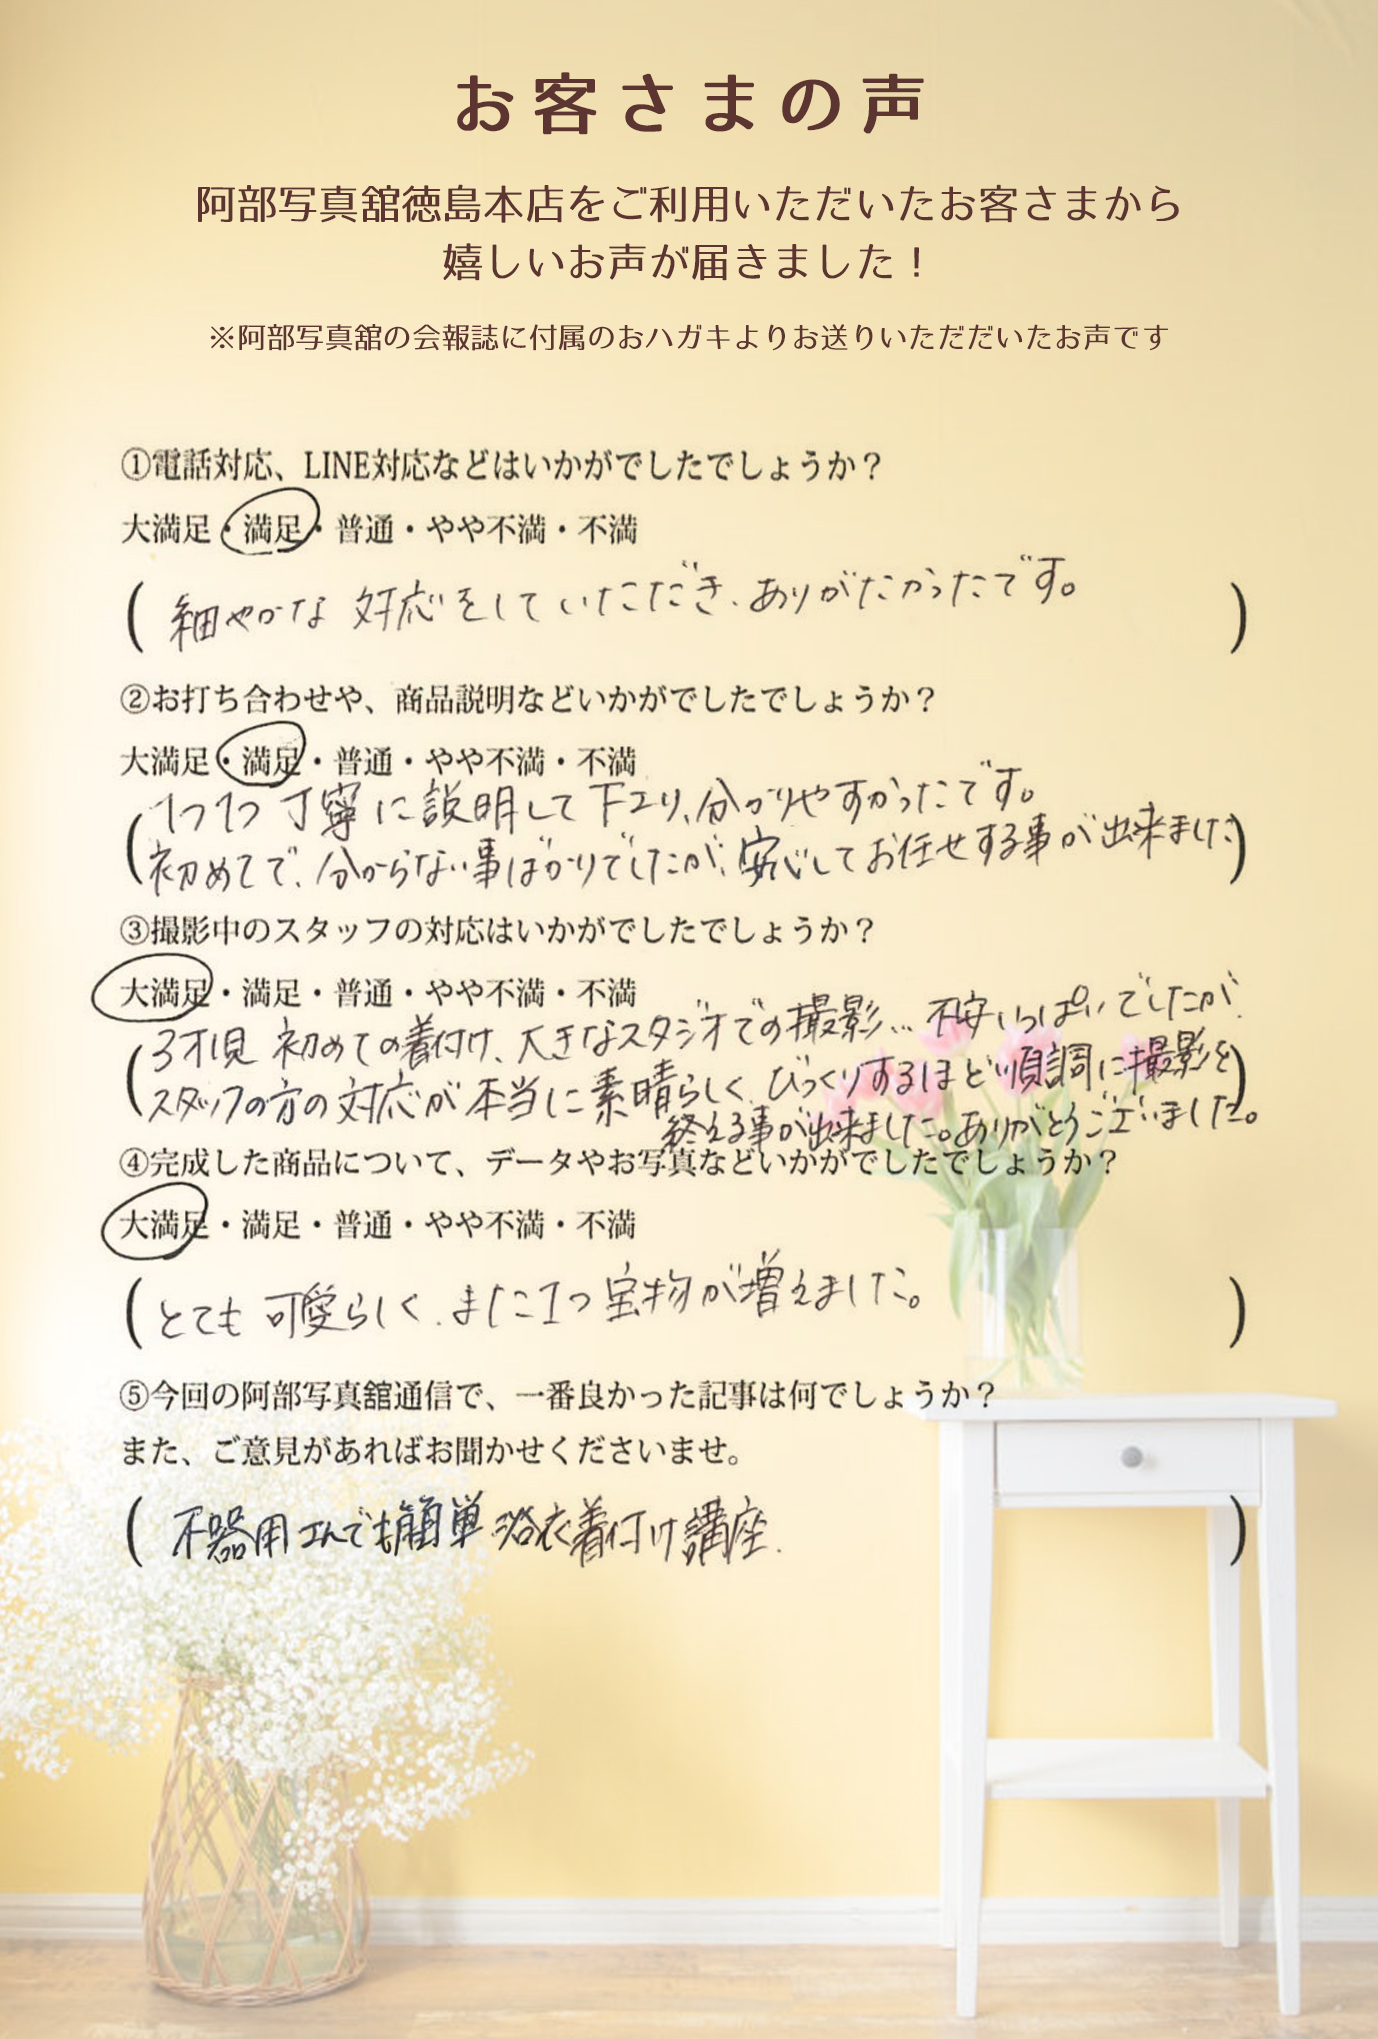 お客さまの声
阿部写真舘徳島本店をご利用いただいたお客さまから
嬉しいお声が届きました！
※阿部写真舘の会報誌に付属のおハガキよりお送りいただだいたお声です
①電話対応、LINE対応などはいかがでしたでしょうか？
大満足・満足・普通・やや不満・不満
(細やかな 対応をしていただき、ありがたかったです。)
②お打ち合わせや、商品説明などいかがでしたでしょうか？
大満足・満足・普通・やや不満・不満
(1つ1つ 丁寧に説明して下さり、分かりやすかったです。
初めてで、分からない事ばかりでしたが、安心してお任せする事が出来ました)
③撮影中のスタッフの対応はいかがでしたでしょうか？
大満足・満足・普通・やや不満・不満
(3才児 初めての着付け、大きなスタジオでの撮影… 不安いっぱいでしたが、
スタッフの方の対応が本当に素晴らしく、びっくりするほど順調に撮影を)
終える事が出来ました。ありがとうございました。
④完成した商品について、データやお写真などいかがでしたでしょうか？
大満足・満足・普通・やや不満・不満
(とても 可愛らしく、また1つ宝物が増えました。)
⑤今回の阿部写真舘通信で、一番良かった記事は何でしょうか？
また、ご意見があればお聞かせくださいませ。
(不器用さんでも簡単 浴衣着付け講座.)